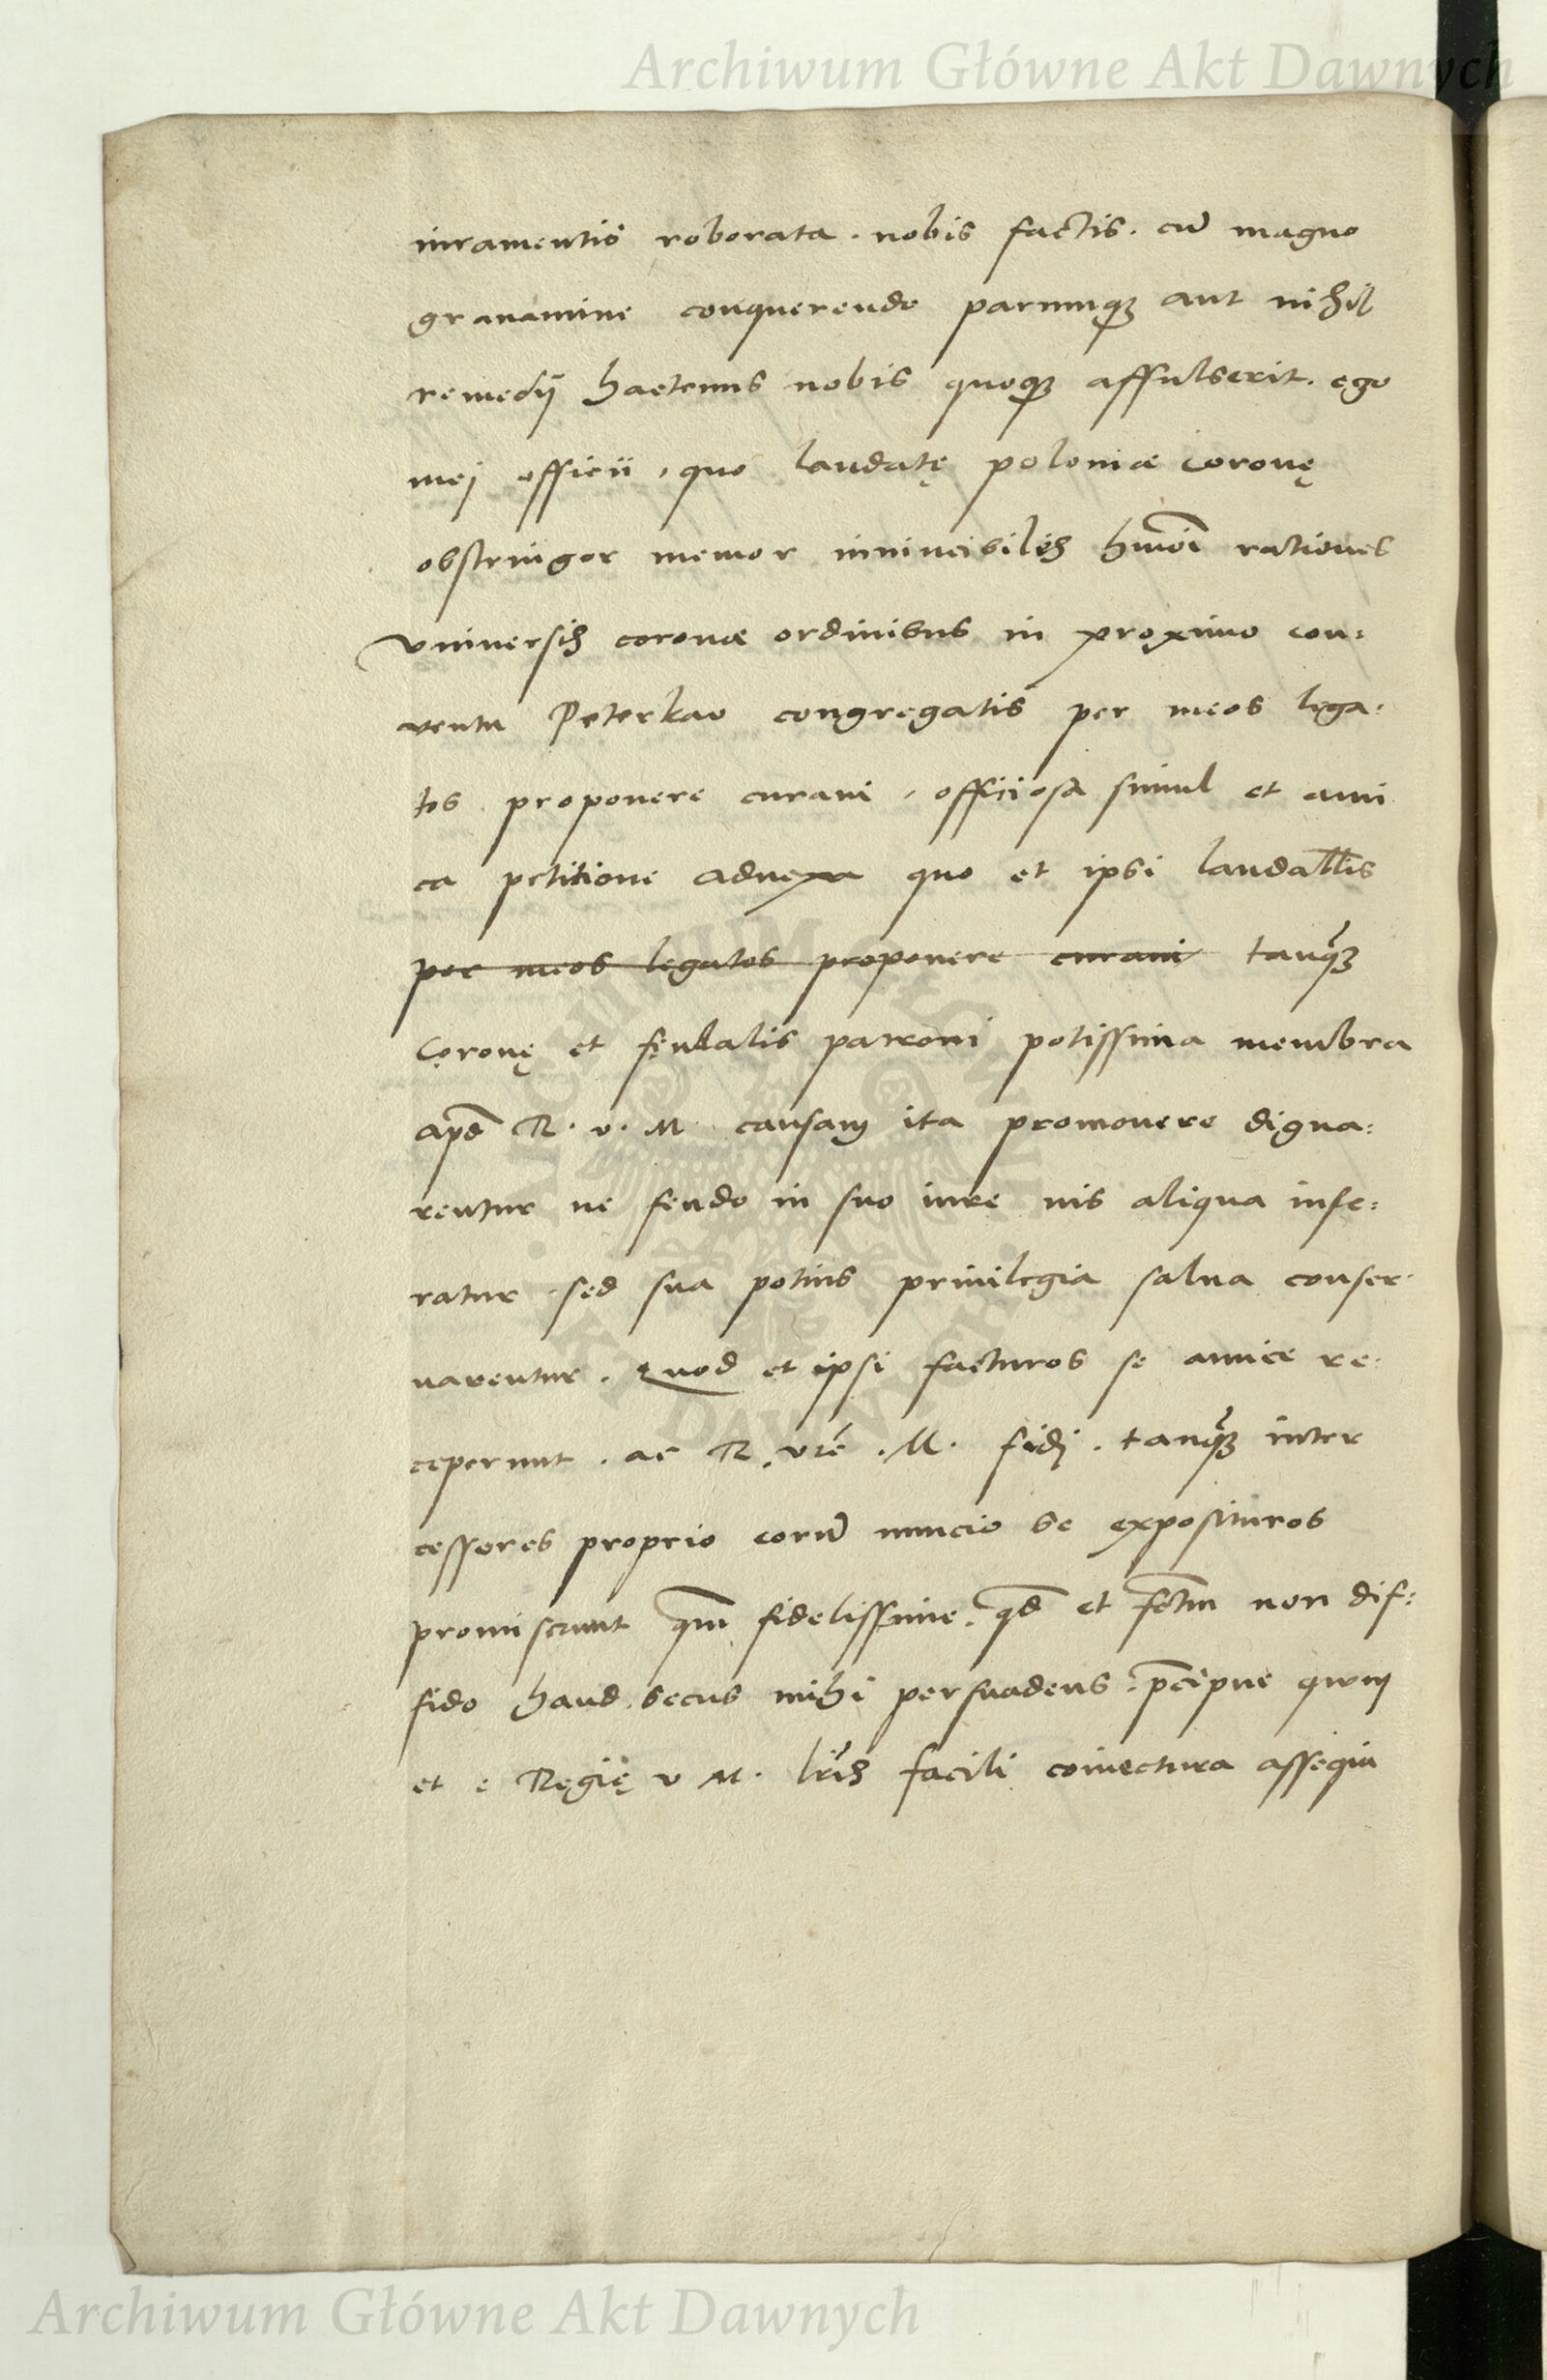 Archiwum Główne Akt Dawnych
iuramentis roborata . nobis factis . cū magno
grauamine conquerendo parumq₃ aut nihil
remedij hactenus nobis quoq₃ affulserit . ego
mej officii , quo laudatę poloniæ Coronę
obstringor memor inuincibiles hmōi rationes
vniuersis coronæ ordinibus in proximo con:
uentu Peterkao congregatis per meos lega:
tos proponere curaui , officiosa simul et ami
ca petitione adnexa quo et ipsi laudattis
per meos legatos proponere curaui tanq̃₃
Coronę et feudalis patroni potissima membra
apd̄ R . v . M causam ita promouere digna:
rentur ne feudo in suo iure uis aliqua infe:
ratur sed sua potius priuilegia salua conser
uarentur . Quod et ipsi facturos se amice re:
ceperunt . ac R . vrē . M . fidj . tanq̃₃ inter
cessores proprio eorū nuncio se exposituros
promiserunt qm̄ fidelissime . qd̄ et fctm̄ non dif:
fido haud secus mihi persuadens . pcīpue quom
et e Regię v M . lr̄is facili coniectura assequi
ARCHIWUM GŁÓWNE AKT DAWNYCH
Archiwum Główne Akt Dawnych